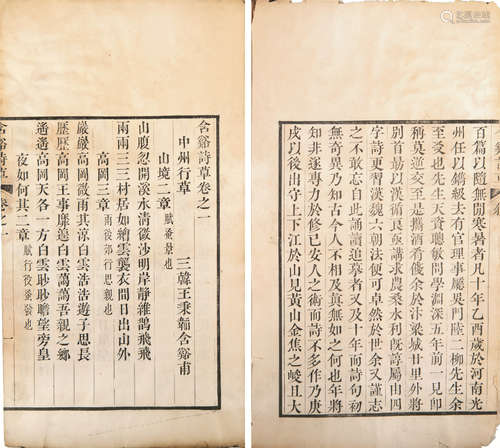 百篇以隨無間寒暑者凡十年乙酉歲於河南光
州任以鐫級去有官理事屬吳門陂二柳先生余
至受也先生天資聰敏問學淵深五年前一見即
稱莫逆交至是攜酒肴餞余於汴梁城廿里外將
別首勗以漢循良並講求農桑水利旣諄屬由四
字詩更習漢魏六朝法便可卓然於世余又謹志
之不敢忘自此誦讀追摹者又及十年而詩句初
無奇異乃知古今人不相及眞無如之何也年將
知非遂專力於修己安人之術而詩不多作乃庚
戌以後出守上下江於山見黃山金焦之峻且大
含谿詩草卷之一
三韓王秉韜含谿甫
中州行草
山境二章 賦景也
山腹忽開溪水清微沙明岸靜雜鵲飛飛
兩兩三三村居如繪雲襲衣間日出山外
高岡三章 雨後郊行思親也
巖巖高岡微雨其涼白雲浩浩遊子思長
歷歷高岡王事靡遑白雲藹藹吾親之鄉
遙遙高岡天各一方白雲眇眇瞻望旁皇
夜如何其二章 賦行役也
含谿詩草 卷之一